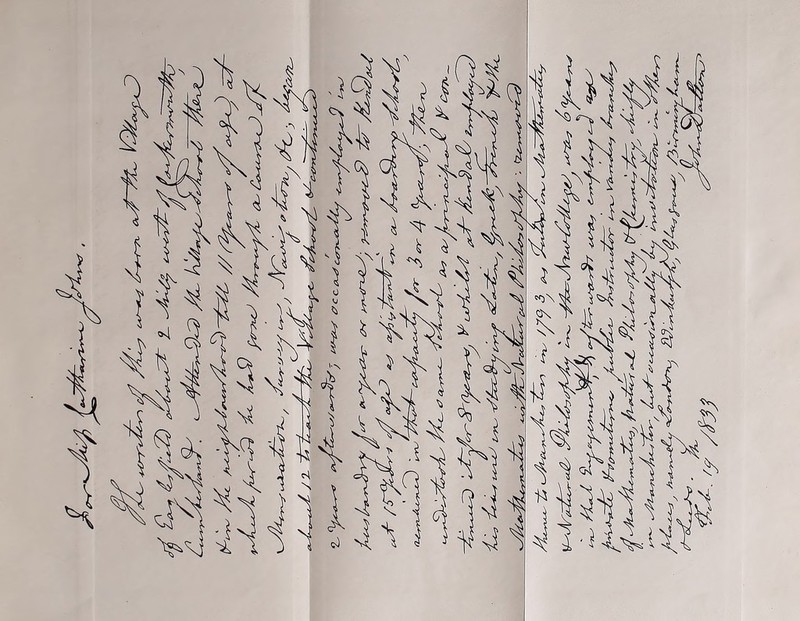 For Miss Catharine Johns.
The writer of this was born at the Village
of Eaglesfield about 2 miles west of Cockermouth,
Cumberland. Attended the Village School there,
& in the neighbourhood till 11 years of age, at
which period he had gone through a course of
Mensuration, Surveying, Navigation, &c; began
about 12 to teach the Village School & continued
2 years afterwards; was occasionally employed in
husbandry for a year or more; removed to Kendal
at 15 years of age as assistant in a boarding School;
remained in that capacity for 3 or 4 years; then
undertook the same School as a principal & con-
tinued it for 8 years; & whilst at Kendal employed
his leisure in studying Latin, Greek, French & the
Mathematics with Natural Philosophy; removed
thence to Manchester in 1793 as Tutor in Mathematics
& Natural Philosophy in the New College; was 6 years
in that engagement & afterwards was employed as
private & sometimes public Instructor in various branches
of Mathematics, Natural Philosophy & Chemistry, chiefly
in Manchester, but occasionally by invitation in other
places, namely London, Edinburgh, Glasgow, Birmingham
& Leeds.
John Dalton
Feb. 19 1833